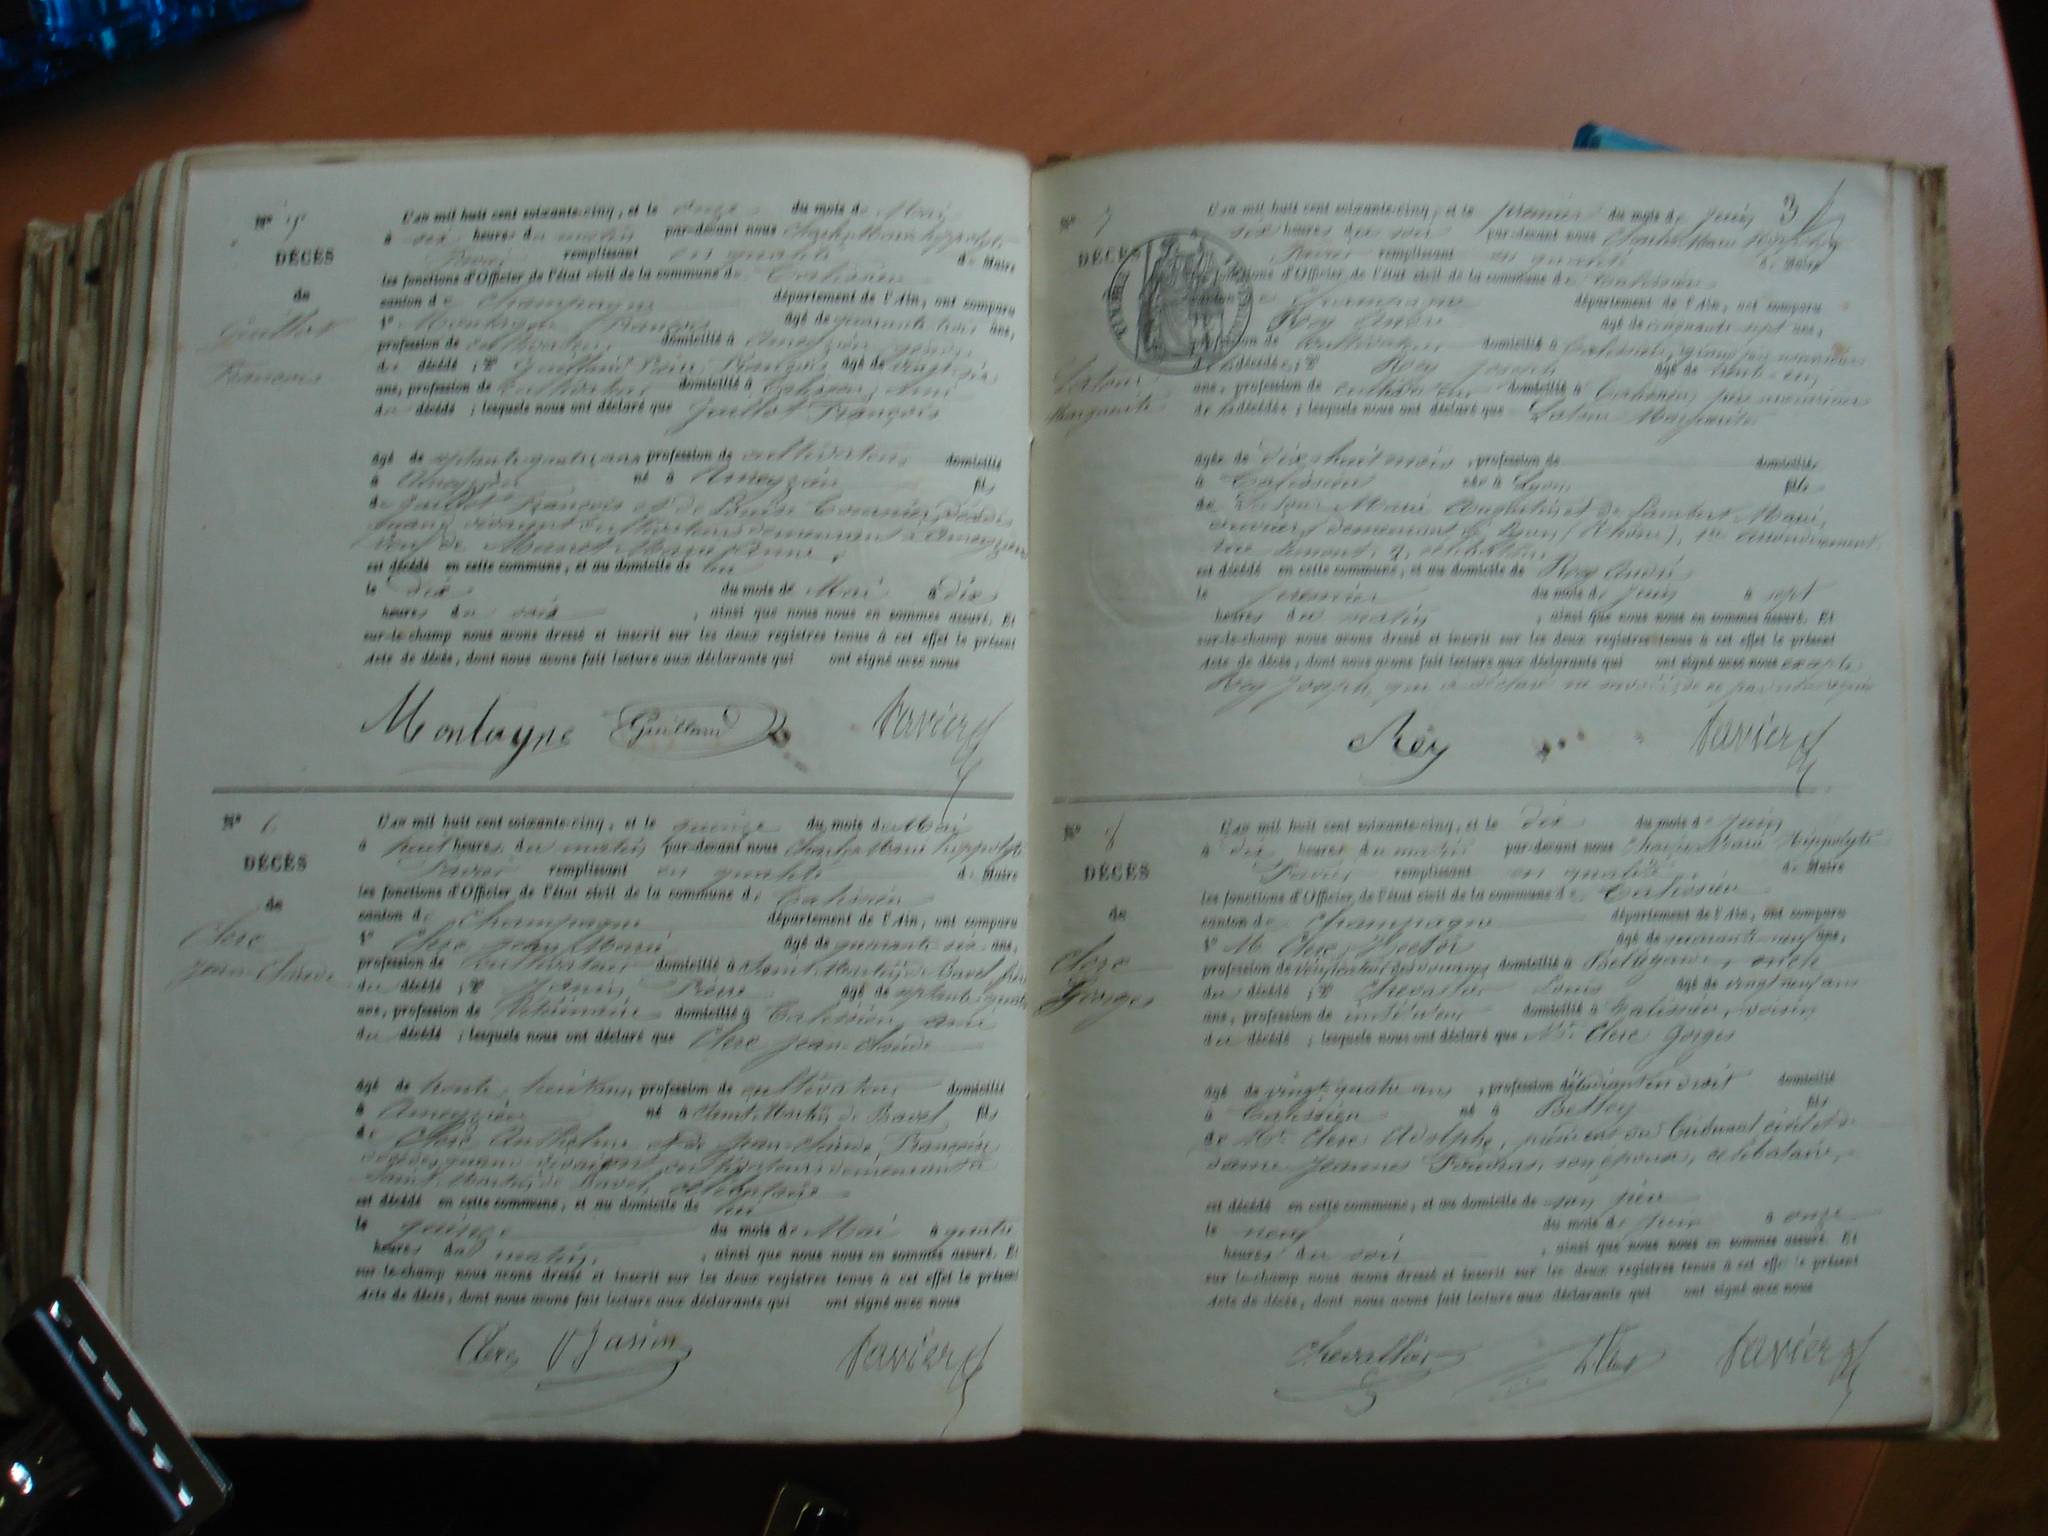 N° 5
DÉCÈS
de
Guillot
François
L'an mil huit cent soixante-cinq, et le onze du mois de Mai
à six heures du matin par-devant nous Charles Marie hippolyte
remplissant en qualité de Maire
les fonctions d'Officier de l'état civil de la commune de Talissieu
canton de Champagne département de l'Ain, ont comparu
1° Montagne François âgé de quarante trois ans,
profession de cultivateur, domicilié à Ameyzieu
du décédé ; 2° Guilland Pierre François âgé de vingt six
ans, profession de cultivateur, domicilié à Talissieu, ami
du décédé ; lesquels nous ont déclaré que Guillot François
âgé de septante quatre ans, profession de cultivateur, domicilié
à Ameyzieu né à Ameyzieu fils
de Guillot François et de Louise
quand vivaient cultivateurs demeurant à Ameyzieu
veuf de Marie
est décédé en cette commune, et au domicile de lui
le dix du mois de Mai à dix
heures du soir , ainsi que nous nous en sommes assuré. Et
sur-le-champ nous avons dressé et inscrit sur les deux registres tenus à cet effet le présent
acte de décès, dont nous avons fait lecture aux déclarants qui ont signé avec nous
Montagne Guilland Tavier
N° 6
DÉCÈS
de
Clerc
Jean-Claude
L'an mil huit cent soixante-cinq, et le quinze du mois de Mai
à huit heures du matin par-devant nous Charles Marie hippolyte
remplissant en qualité de Maire
les fonctions d'Officier de l'état civil de la commune de Talissieu
canton de Champagne département de l'Ain, ont comparu
1° Clerc Jean Marie âgé de quarante six ans,
profession de cultivateur domicilié à Saint Martin de Bavel frère
du décédé ; 2° Pierre âgé de septante quatre
ans, profession de Vétérinaire domicilié à Talissieu, ami
du décédé ; lesquels nous ont déclaré que Clerc Jean-Claude
âgé de trente huit ans, profession de cultivateur domicilié
à Ameyzieu né à Saint Martin de Bavel fils
de Clerc Anthelme et de Jean-Claude Françoise
décédés quand vivaient cultivateurs demeurant à
Saint Martin de Bavel, célibataire
est décédé en cette commune, et au domicile de lui
le quinze du mois de Mai à quatre
heures du matin, , ainsi que nous nous en sommes assuré. Et
sur-le-champ nous avons dressé et inscrit sur les deux registres tenus à cet effet le présent
acte de décès, dont nous avons fait lecture aux déclarants qui ont signé avec nous
Clerc Tavier
3
N° 7
DÉCÈS
Latour
Marguerite
L'an mil huit cent soixante-cinq, et le premier du mois de Juin
six heures du soir par-devant nous Charles Marie Hippolyte
remplissant en qualité de Maire
fonctions d'Officier de l'état civil de la commune de Talissieu
Champagne département de l'Ain, ont comparu
Rey André âgé de cinquante sept ans,
cultivateur, domicilié à Talissieu, père nourricier
décédée ; 2° Rey Joseph âgé de trente un
ans, profession de cultivateur domicilié à Talissieu, père nourricier
de la décédée ; lesquels nous ont déclaré que Latour Marguerite
âgée de dix huit mois , profession de domicilié
à Talissieu née à Lyon, fille
de Latour Marie Augustin et de Lambert Marie,
ouvriers, demeurant à Lyon (Rhône), 1er arrondissement
est décédé en cette commune, et au domicile de Rey André
le premier du mois de Juin à sept
heures du matin , ainsi que nous nous en sommes assuré. Et
sur-le-champ nous avons dressé et inscrit sur les deux registres tenus à cet effet le présent
acte de décès, dont nous avons fait lecture aux déclarants qui ont signé avec nous excepté
Rey Joseph, qui a déclaré ne savoir de ce par nous requis
Rey Tavier
N° 8
DÉCÈS
de
Clerc
Gorges
L'an mil huit cent soixante-cinq, et le dix du mois de Juin
à dix heures du matin par-devant nous Charles Marie Hippolyte
remplissant en qualité de Maire
les fonctions d'Officier de l'état civil de la commune de Talissieu
canton de Champagne département de l'Ain, ont comparu
1° M Clerc Hector âgé de quarante neuf ans,
profession de vérificateur des douanes, domicilié à Bellegarde, oncle
du décédé ; 2° Chevallier Louis âgé de vingt neuf ans
ans, profession de instituteur domicilié à Talissieu, voisin
du décédé ; lesquels nous ont déclaré que Mr. Clerc Gorges
âgé de vingt quatre ans , profession d'étudiant en droit domicilié
à Talissieu né à Belley fils
de Mr. Clerc Adolphe, président du Tribunal civil et de
dame Jeannes son épouse, célibataire,
est décédé en cette commune, et au domicile de son père
le neuf du mois de Juin à onze
heures du soir , ainsi que nous nous en sommes assuré. Et
sur-le-champ nous avons dressé et inscrit sur les deux registres tenus à cet effet le présent
acte de décès, dont nous avons fait lecture aux déclarants qui ont signé avec nous
Chevallier Tavier